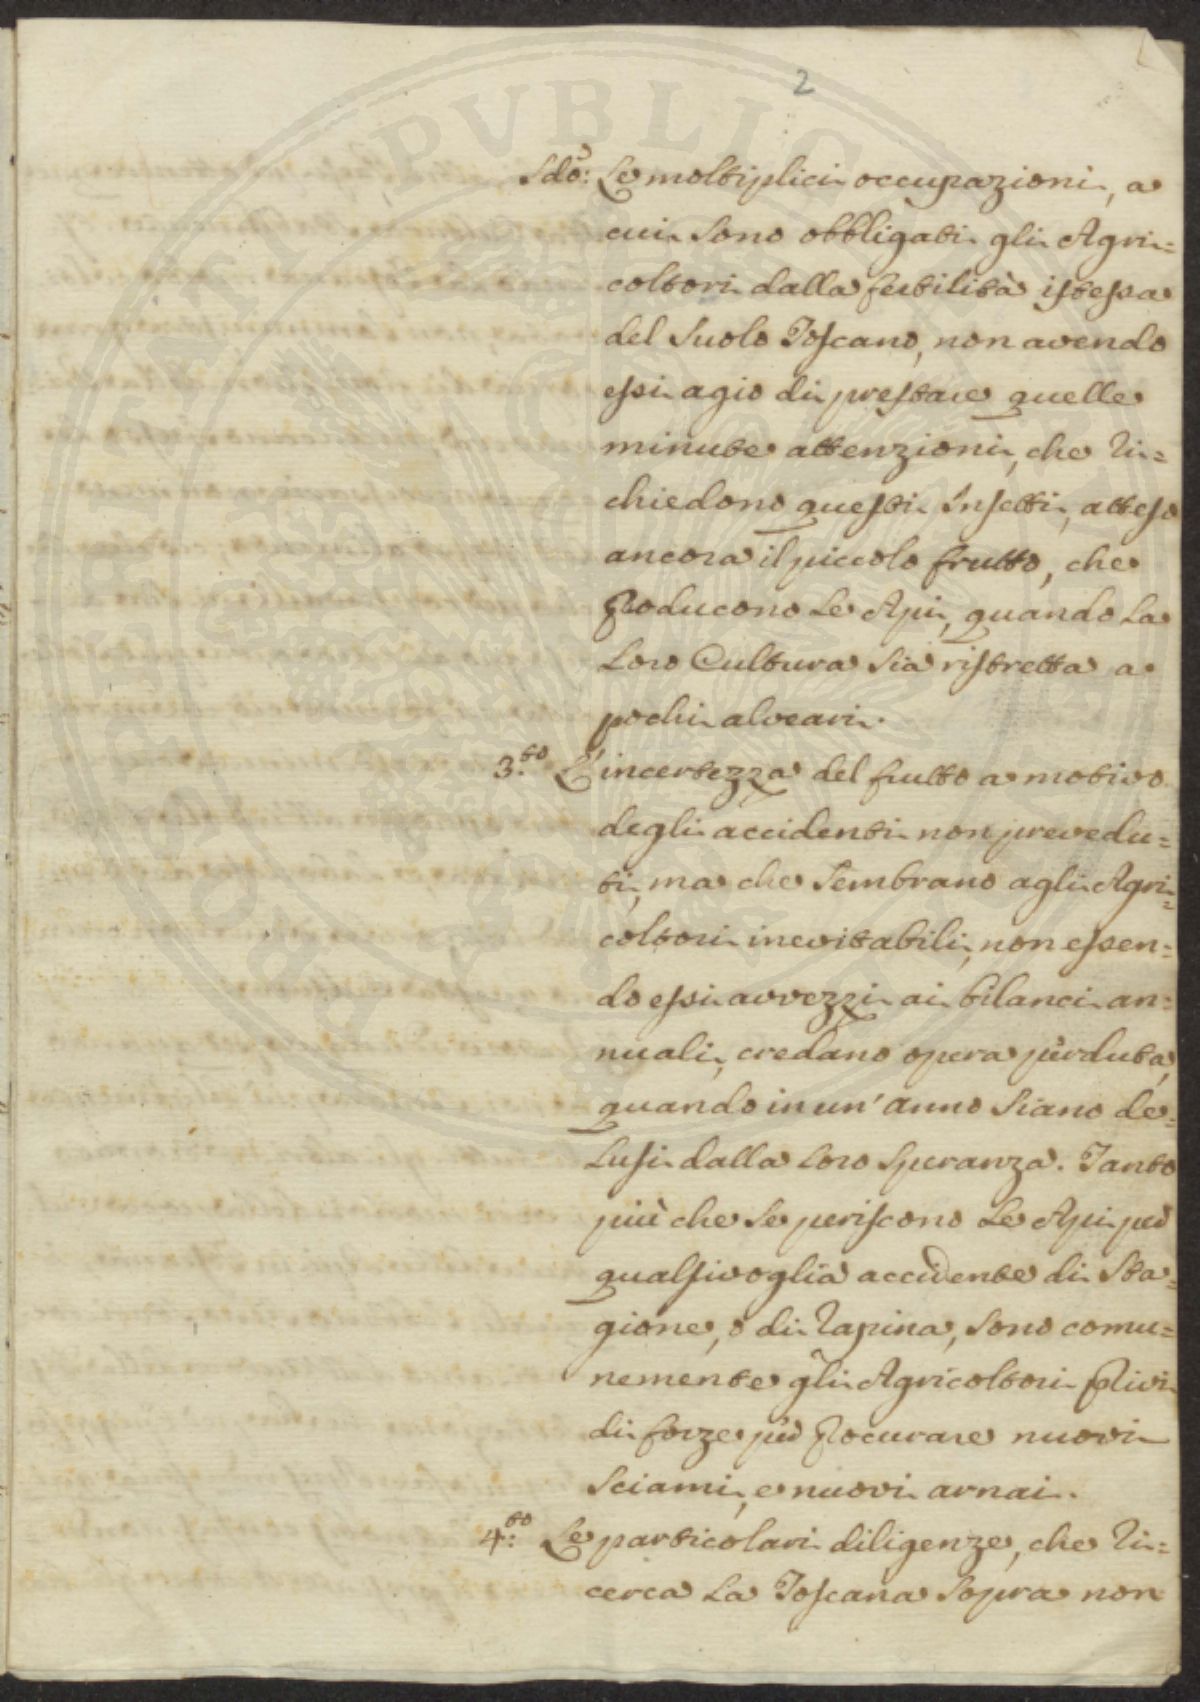 2
Sdo: Le moltiplici occupazioni, a
cui sono obbligati gli Agri=
coltori dalla fertilità istessa
del Suolo Toscano, non avendo
essi agio di prestare quelle
minute attenzioni, che ri=
chiedono questi Insetti, atteso
ancora il piccolo frutto, che
Producono Le Api, quando La
Loro Cultura sia ristretta a
pochi alveari.
3.to L'incertezza del frutto a motivo
degli accidenti non prevedu=
ti, ma che sembrano agli Agri=
coltori inevitabili, non essen=
do essi avvezzi ai bilanci an=
nuali, credano opera perduta,
quando in un' anno siano de=
Lusi dalla Loro Speranza. Tanto
più che se periscono Le Api per
qualsivoglia accidente di Sta=
gione, o di rapina, sono comu=
nemente gli Agricoltori Privi
di forze per Procurare nuovi
Sciami, e nuovi arnai.
4.to: Le particolari diligenze, che ri=
cerca La Toscana sopra non